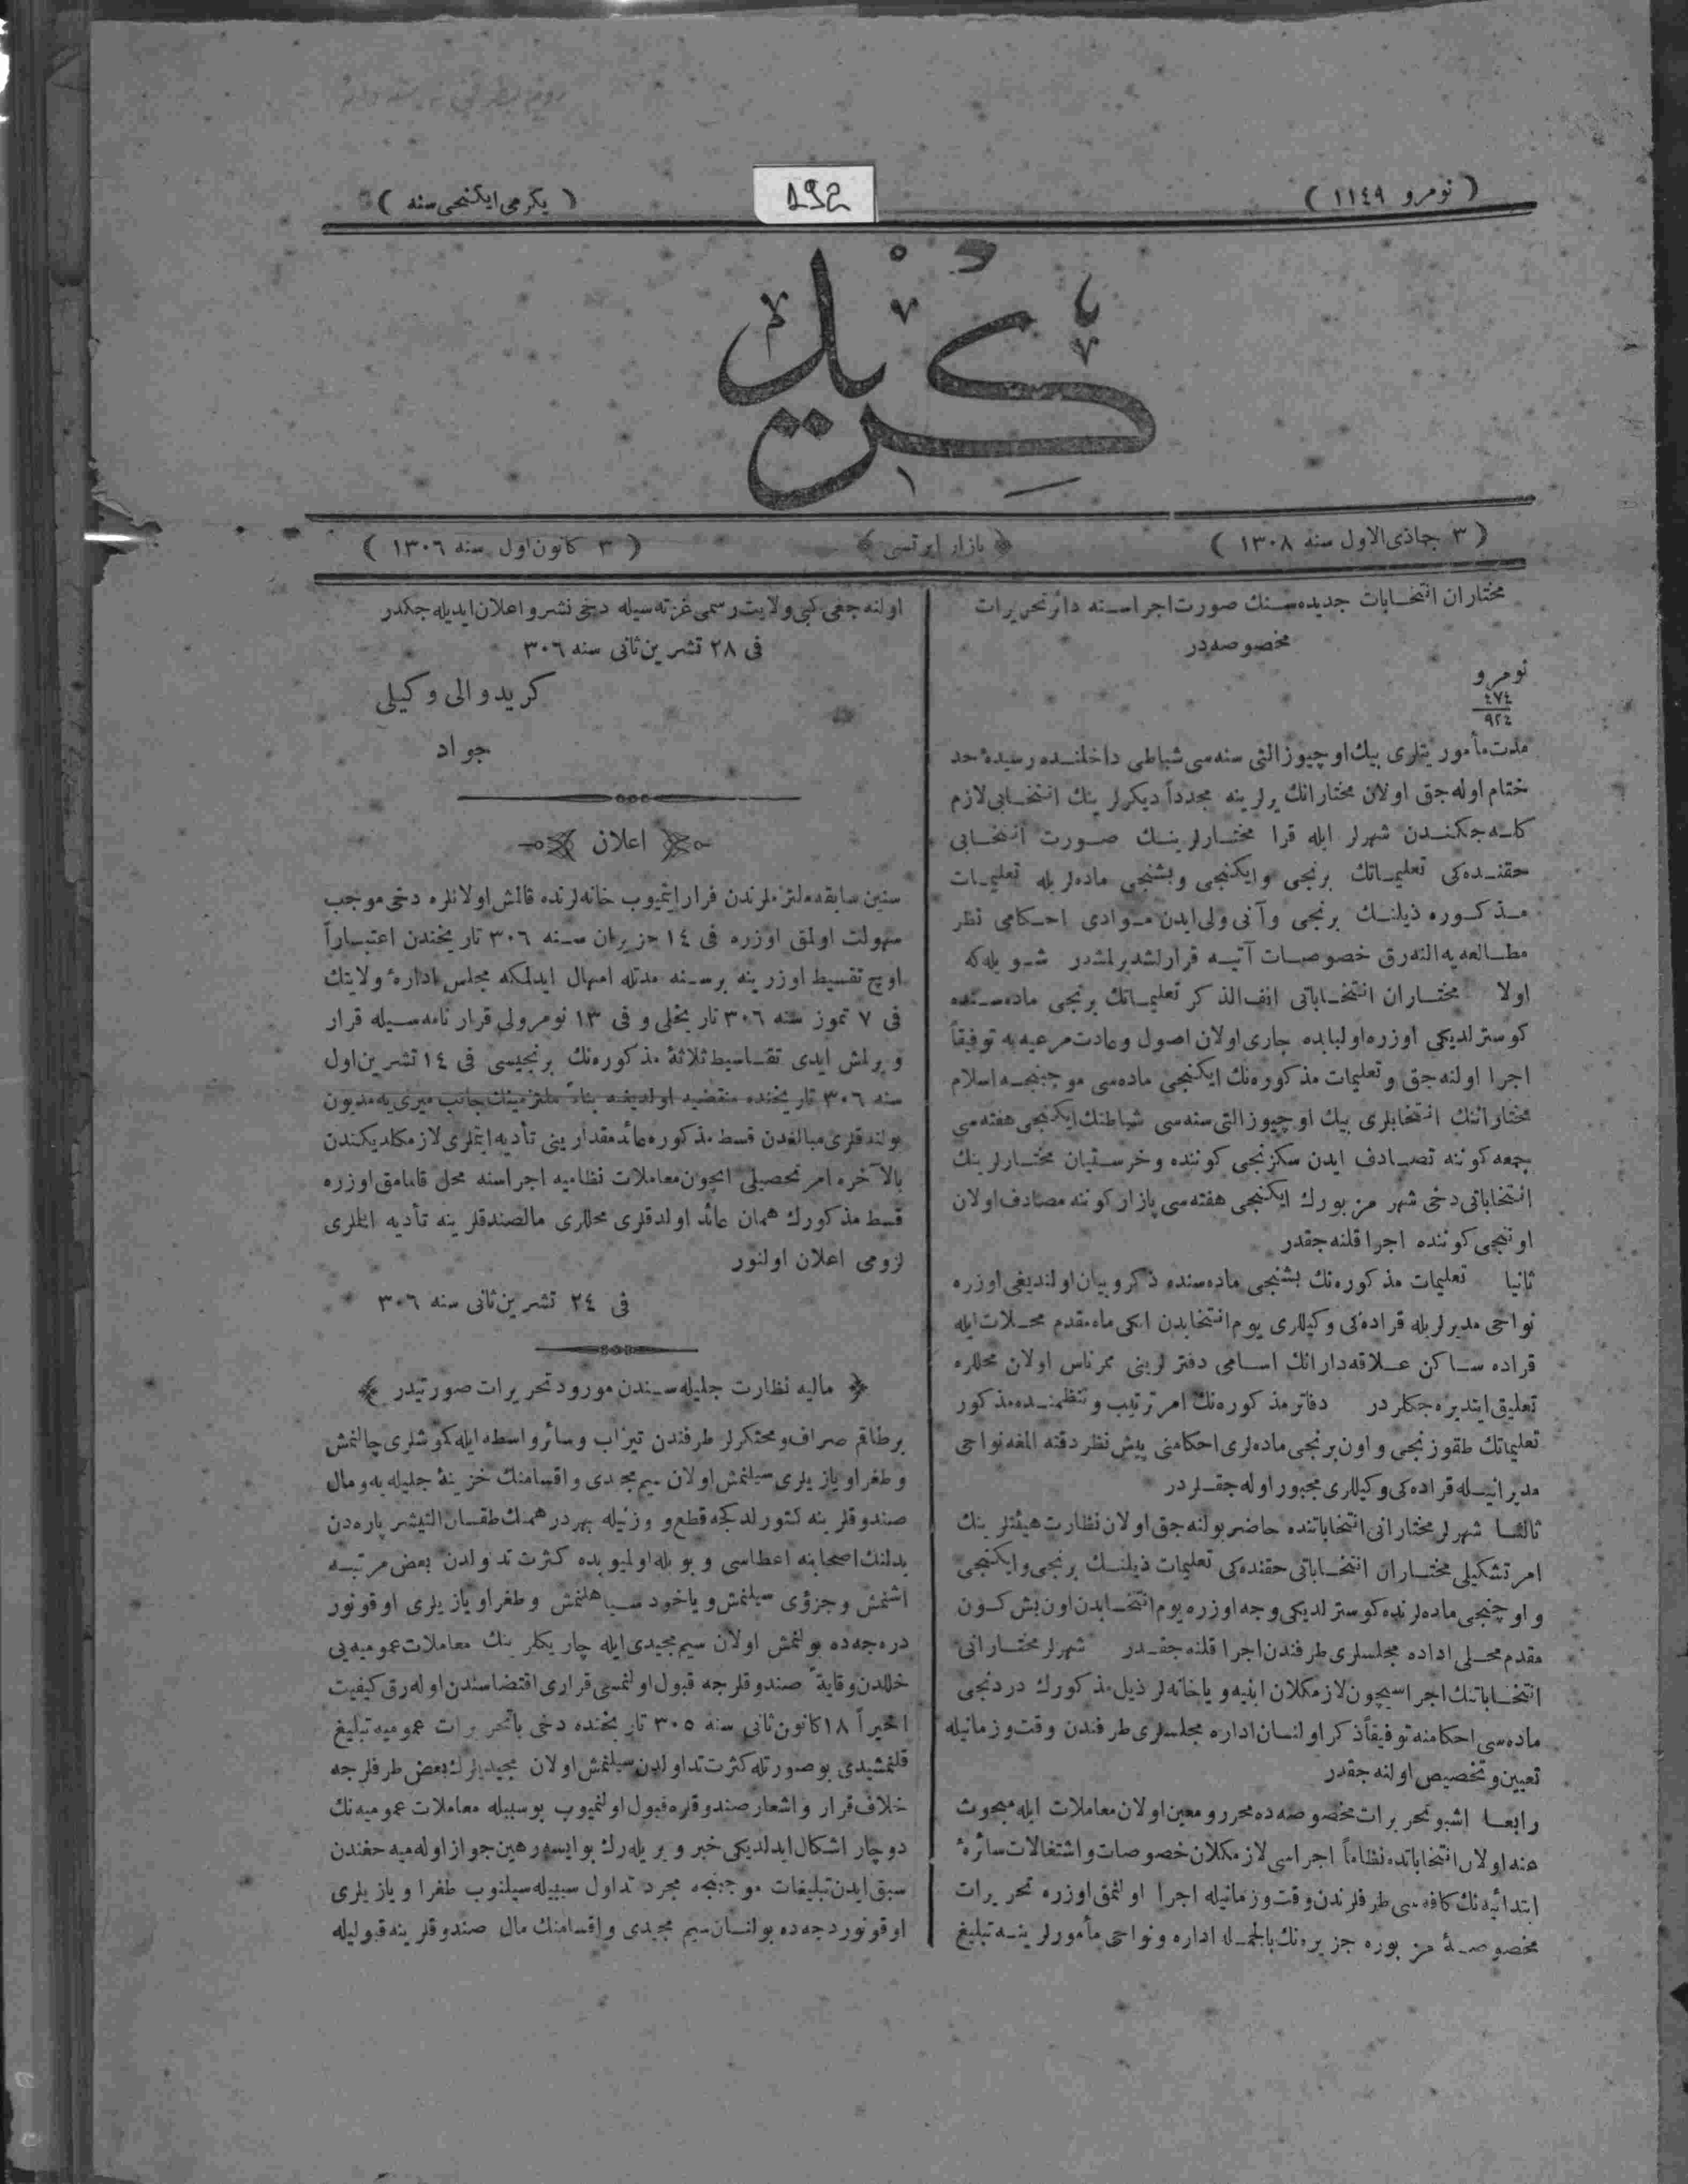 ( نومرو ١١٤٩ )
192
( يكرمى ايكنجى سنه )
كريد
( ٣ جماذى الاول سنه ١٣٠٨ )
﴿ بازار ايرتسى ﴾
( ٣ كانون اول سنه ١٣٠٦ )
مختاران انتخابات جديده سنك صورت اجراسنه دائر تحريرات
مخصوصه در
نومرو
٤٧٤
٩٢٤
مدت مأموريتلرى بيك اوچيوز التى سنه سى شباطى داخلنده رسيدۀ حد
ختام اوله جق اولان مختارانك يرلرينه مجدداً ديكرلرينك انتخابى لازم
كله جكندن شهرلر ايله قرا مختارلرينك صورت انتخابى
حقنده كى تعليماتك برنجى وايكنجى وبشنجى ماده لريله تعليمات
مذكوره ذيلنك برنجى وآنى ولى ايدن موادى احكامى نظر
مطالعه يه النه رق خصوصات آتيه قرارلشديرلمشدر شويله كه
اولا مختاران انتخاباتى انف الذكر تعليماتك برنجى ماده سنده
كوسترلديكى اوزره اولبابده جارى اولان اصول وعادت مرعيه يه توفيقاً
اجرا اولنه جق وتعليمات مذكوره نك ايكنجى ماده سى موجبنجه اسلام
مختارانك انتخابلرى بيك اوچيوز التى سنه سى شباطنك ايكنجى هفته سى
جمعه كوننه تصادف ايدن سكزنجى كوننده وخرستيان مختارلرينك
انتخاباتى دخى شهر مزبورك ايكنجى هفته سى پازار كوننه مصادف اولان
اوننجى كوننده اجرا قلنه جقدر
ثانيا تعليمات مذكوره نك بشنجى ماده سنده ذكر وبيان اولنديغى اوزره
نواحى مديرلريله قراده كى وكيللرى يوم انتخابدن ايكى ماه مقدم محلات ايله
قراده ساكن علاقه دارانك اسامى دفترلرينى ممرناس اولان محللره
تعليق ايتديره جكلردر دفاتر مذكوره نك امر ترتيب وتنظيمنده مذكور
تعليماتك طقوزنجى و اون برنجى ماده لرى احكامنى پيش نظر دقته المغه نواحى
مديرانيله قراده كى وكيللرى مجبور اوله جقلردر
ثالثا شهرلر مختارانى انتخاباتنده حاضر بولنه جق اولان نظارت هيئتلرينك
امر تشكيلى مختاران انتخاباتى حقنده كى تعليمات ذيلنك برنجى وايكنجى
و اوچنجى ماده لرنده كوسترلديكى وجه اوزره يوم انتخابدن اون بش كون
مقدم محلى اداده مجلسلرى طرفندن اجرا قلنه جقدر شهرلر مختارانى
انتخاباتنك اجراسيچون لازمكلان ابنيه و ياخانه لر ذيل مذكورك دردنجى
ماده سى احكامنه توفيقاً ذكر اولنان اداره مجلسلرى طرفندن وقت وزمانيله
تعيين وتخصيص اولنه جقدر
رابعا اشبو تحريرات مخصوصه ده محرر ومعين اولان معاملات ايله مبحوث
عنه اولان انتخاباتده نظاماً اجراسى لازمكلان خصوصات واشتغالات سائرۀ
ابتدائيه نك كافه سى طرفلرندن وقت وزمانيله اجرا اولنمق اوزره تحريرات
مخصوصۀ مزبوره جزيره نك بالجمله اداره ونواحى مأمورلرينه تبليغ
اولنه جغى كبى ولايت رسمى غزته سيله دخى نشر و اعلان ايديله جكدر
فى ٢٨ تشرين ثانى سنه ٣٠٦
كريد والى وكيلى
جواد
اعلان
سنين سابقه ملتزملرندن فرار ايتميوب خانه لرنده قالمش اولانلره دخى موجب
سهولت اولمق اوزره فى ١٤ حزيران سنه ٣٠٦ تاريخندن اعتباراً
اوچ تقسيط اوزرينه برسنه مدتله امهال ايدلمكه مجلس ادارۀ ولايتك
فى ٧ تموز سنه ٣٠٦ تاريخلى و فى ١٣ نومرولى قرارنامه سيله قرار
ويرلمش ايدى تقاسيط ثلاثۀ مذكوره نك برنجيسى فى ١٤ تشرين اول
سنه ٣٠٦ تاريخنده منقضيه اولديغنه بناءً ملتزمينك جانب ميرى يه مديون
بولندقلرى مبالغدن قسط مذكوره عائد مقدارينى تأديه ايتملرى لازمكلديكندن
بالآخره امر تحصيلى ايچون معاملات نظاميه اجراسنه محل قالمامق اوزره
قسط مذكورك همان عائد اولدقلرى محللرى مالصندقلرينه تأديه ايتملرى
لزومى اعلان اولنور
فى ٢٤ تشرين ثانى سنه ٣٠٦
﴿ ماليه نظارت جليله سندن مورود تحريرات صورتيدر ﴾
برطاقم صراف ومحتكرلر طرفندن تيزاب وسائر واسطه ايله كوشلرى چالنمش
وطغرا و يازيلرى سيلنمش اولان سيم مجيدى و اقسامنك خزينۀ جليله يه و مال
صندوقلرينه كتورلدكجه قطع و وزنيله بهر درهمنك طقسان التيشر پاره دن
بدلنك اصحابنه اعطاسى و بويله اولميوبده كثرت تدولدن بعض مرتبه
اشنمش و جزؤى سيلنمش و ياخود سياهلنمش وطغرا و يازيلرى اوقونور
درجه ده بولنمش اولان سيم مجيدى ايله چاريكلرينك معاملات عموميه يى
خللدن وقايةً صندوقلرجه قبول اولنمسى قرارى اقتضاسندن اوله رق كيفيت
اخيراً ١٨ كانون ثانى سنه ٣٠٥ تاريخنده دخى باتحريرات عموميه تبليغ
قلنمشيدى بوصورتله كثرت تداولدن سيلنمش اولان مجيديلرك بعض طرفلرجه
خلاف قرار و اشعار صندوقلره قبول اولنميوب بوسببله معاملات عموميه نك
دوچار اشكال ايدلديكى خبر ويريله رك بو ايسه رهين جواز اوله ميه جغندن
سبق ايدن تبليغات موجبنجه مجرد تداول سببيله سيلنوب طغرا و يازيلرى
اوقونور درجه ده بولنان سيم مجيدى و اقسامنك مال صندوقلرينه قبوليله